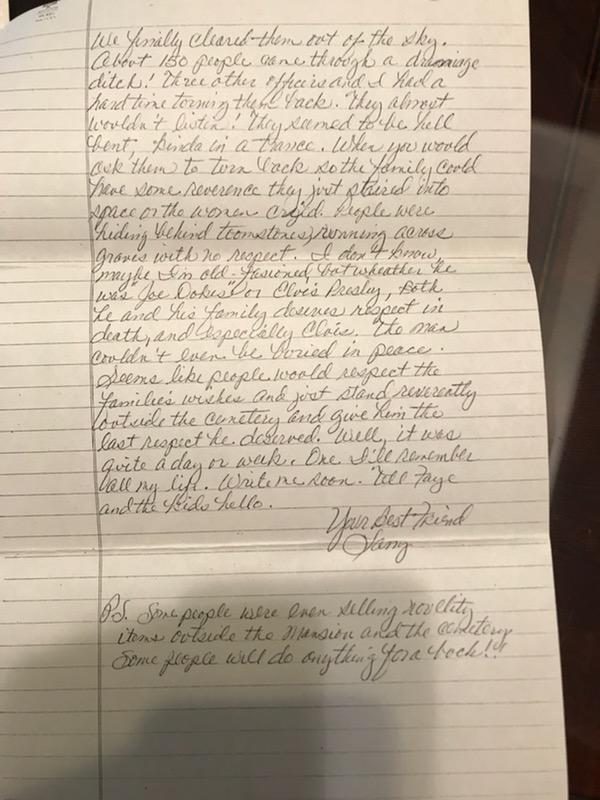 We finally cleared them out of the sky.
About 150 people came through a drainage
ditch! Three other officers and I had a
hard time torning them back. They almost
wouldn't listen! They seemed to be hell
bent, kinda in a trance. When you would
ask them to torn back so the family could
have some reverence they just staired into
space or the women cryed. People were
hiding behind toomstones, running across
graves with no respect. I don't know,
maybe I'm old-fasioned, but wheather he
was "Joe Dokes" or Elvis Presley, both
he and his family deserves respect in
death, and especially Elvis. The man
couldn't even be buried in peace.
Seems like people would respect the
families wishes and just stand reverently
outside the cemetery and give him the
last respect he deserved. Well, it was
quite a day or week. One I'll remember
all my life. Write me soon. Tell Faye
and the kids hello.
Your Best Friend
Larry
P.S. Some people were even selling novelity
items outside the mansion and the cemetery
Some people will do anything for a buck!!